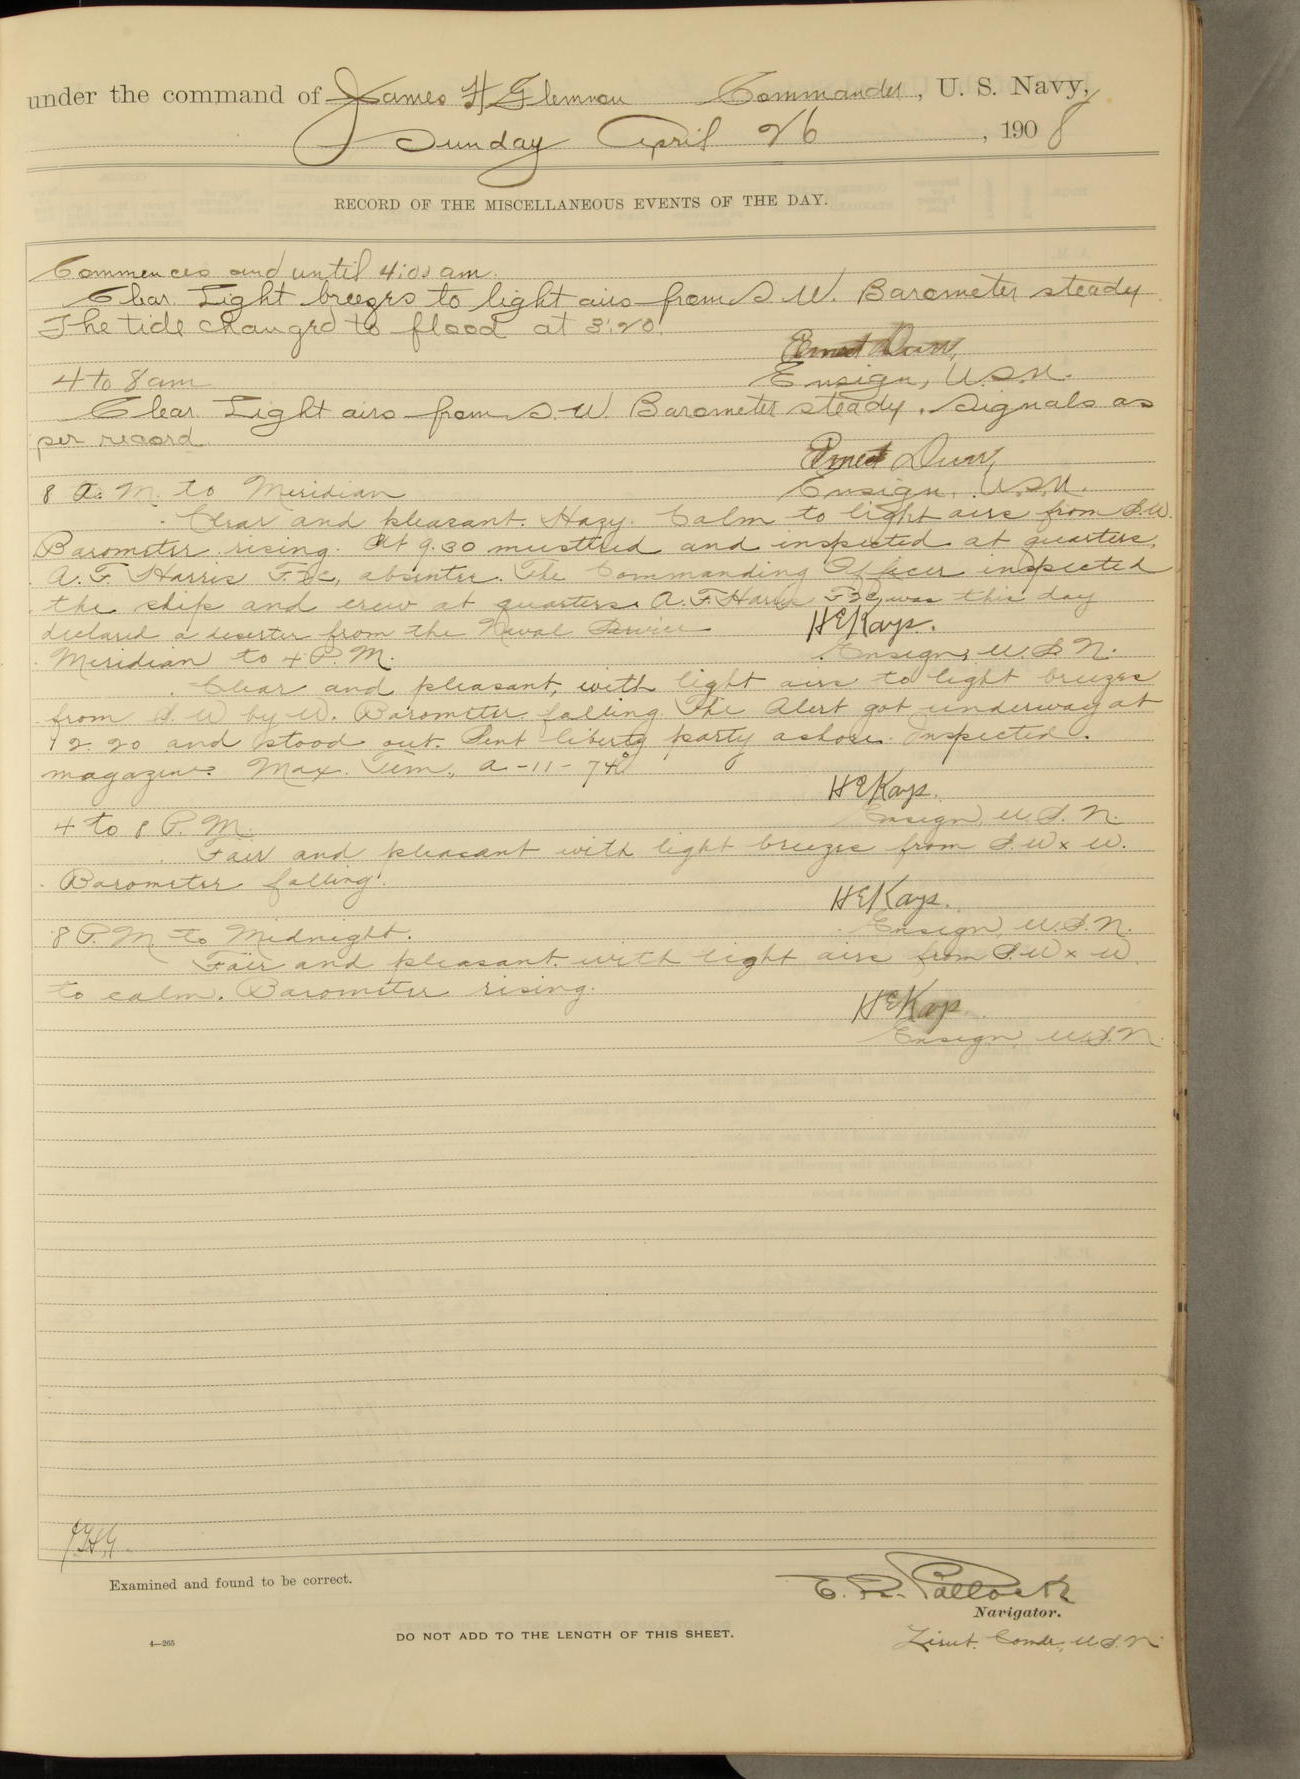 under the command of James H Glennon Commander, U. S. Navy,
Sunday April 26, 1908
RECORD OF THE MISCELLANEOUS EVENTS OF THE DAY.
Commences and until 4:00 am.
Clear. Light breezes to light airs from S. W. Barometer steady
The tide changed to flood at 3:20.
Ernest Durr,
4 to 8 am
Ensign, U.S.N.
Clear. Light airs from S. W. Barometer steady. Signals as
per record
Ernest Durr,
8 A. M. to Meridian
Ensign, U.S.N.
Clear and pleasant. Hazy. Calm to light airs from S.W.
Barometer rising. At 9.30 mustered and inspected at quarters,
A. F. Harris F.2c, absentee. The Commanding Officer inspected
the ship and crew at quarters. A. F. Harris F2c, was this day
declared a deserter from the Naval Service
H E Kays.
Meridian to 4 P. M.
Ensign, U. S. N.
Clear and pleasant, with light airs to light breezes
from S. W by W. Barometer falling. The Alert got underway at
12.20 and stood out. Sent liberty party ashore. Inspected
magazines. Max. Tem., A-11-74°
H E Kays.
4 to 8 P. M.
Ensign, U. S. N.
Fair and pleasant with light breezes from S. W x W.
Barometer falling.
H E Kays.
8 P. M to Midnight.
Ensign, U. S. N.
Fair and pleasant with light airs from S. W x W.
to calm. Barometer rising.
H E Kays.
Ensign, U.S.N.
J.H.G.
Examined and found to be correct.
E. R. Pollock
Navigator.
DO NOT ADD TO THE LENGTH OF THIS SHEET.
4—265
Lieut. Comdr, U.S.N.